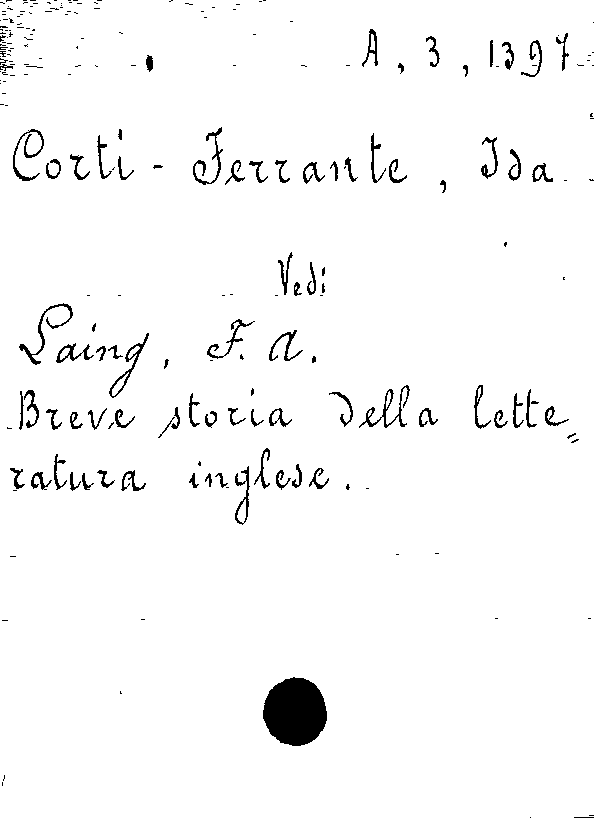 A, 3, 1397
Corti - Ferrante, Ida
Vedi
Laing, F. A.
Breve storia della lette=
ratura inglese.